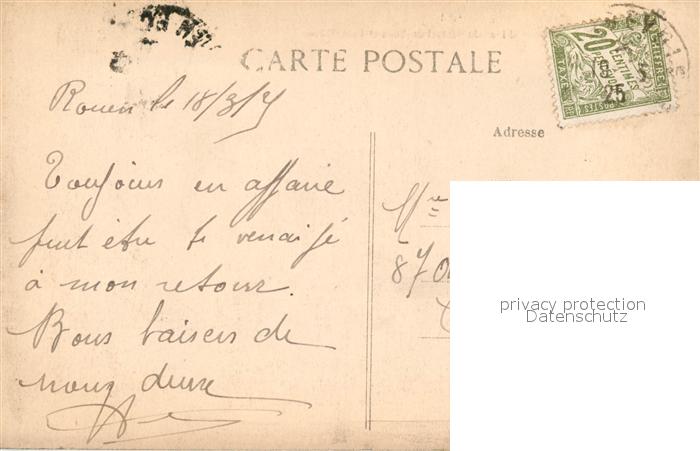 CARTE POSTALE
Rouen le 18/3/25
Toujours en affaire
peut être te verrai je
à mon retour.
Bons baisers de
nous deux
Adresse
Mme
87
20
CENTIMES
A PERCEVOIR
TAXE
POSTES
25
privacy protection
Datenschutz